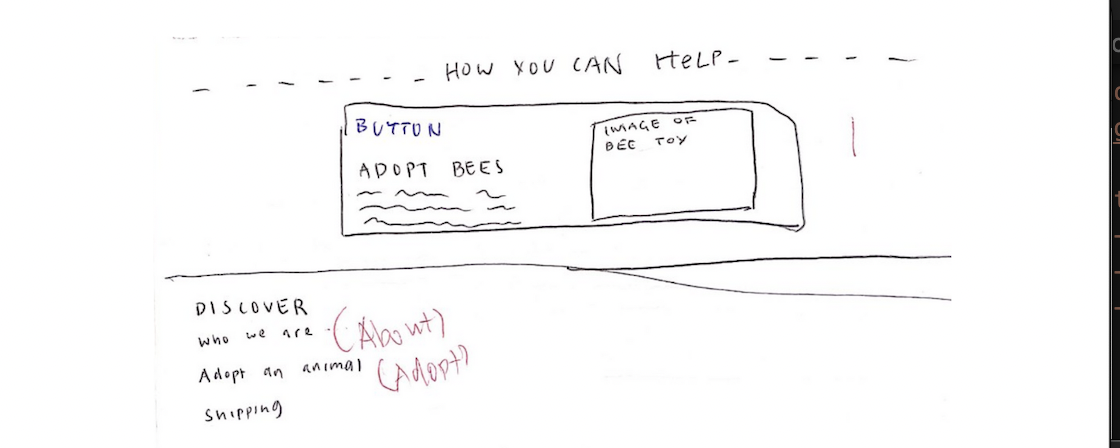 HOW YOU CAN HELP
BUTTON
ADOPT BEES
IMAGE OF
BEE TOY
DISCOVER
Who we are (About)
Adopt an animal (Adopt)
Shipping